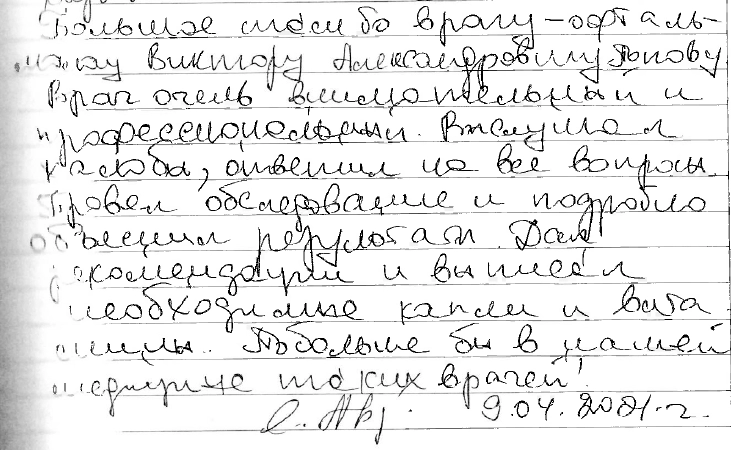 Большое спасибо врачу-офталь-
мологу Виктору Александровичу
Врач очень внимательный и
профессиональный. Выслушал
жалобы, ответил на все вопросы.
Провел обследование и подробно
объяснил результаты. Дал
рекомендации и выписал
необходимые капли и вита
мины. Побольше бы в нашей
медицине таких врачей!
9.04.2021 г.